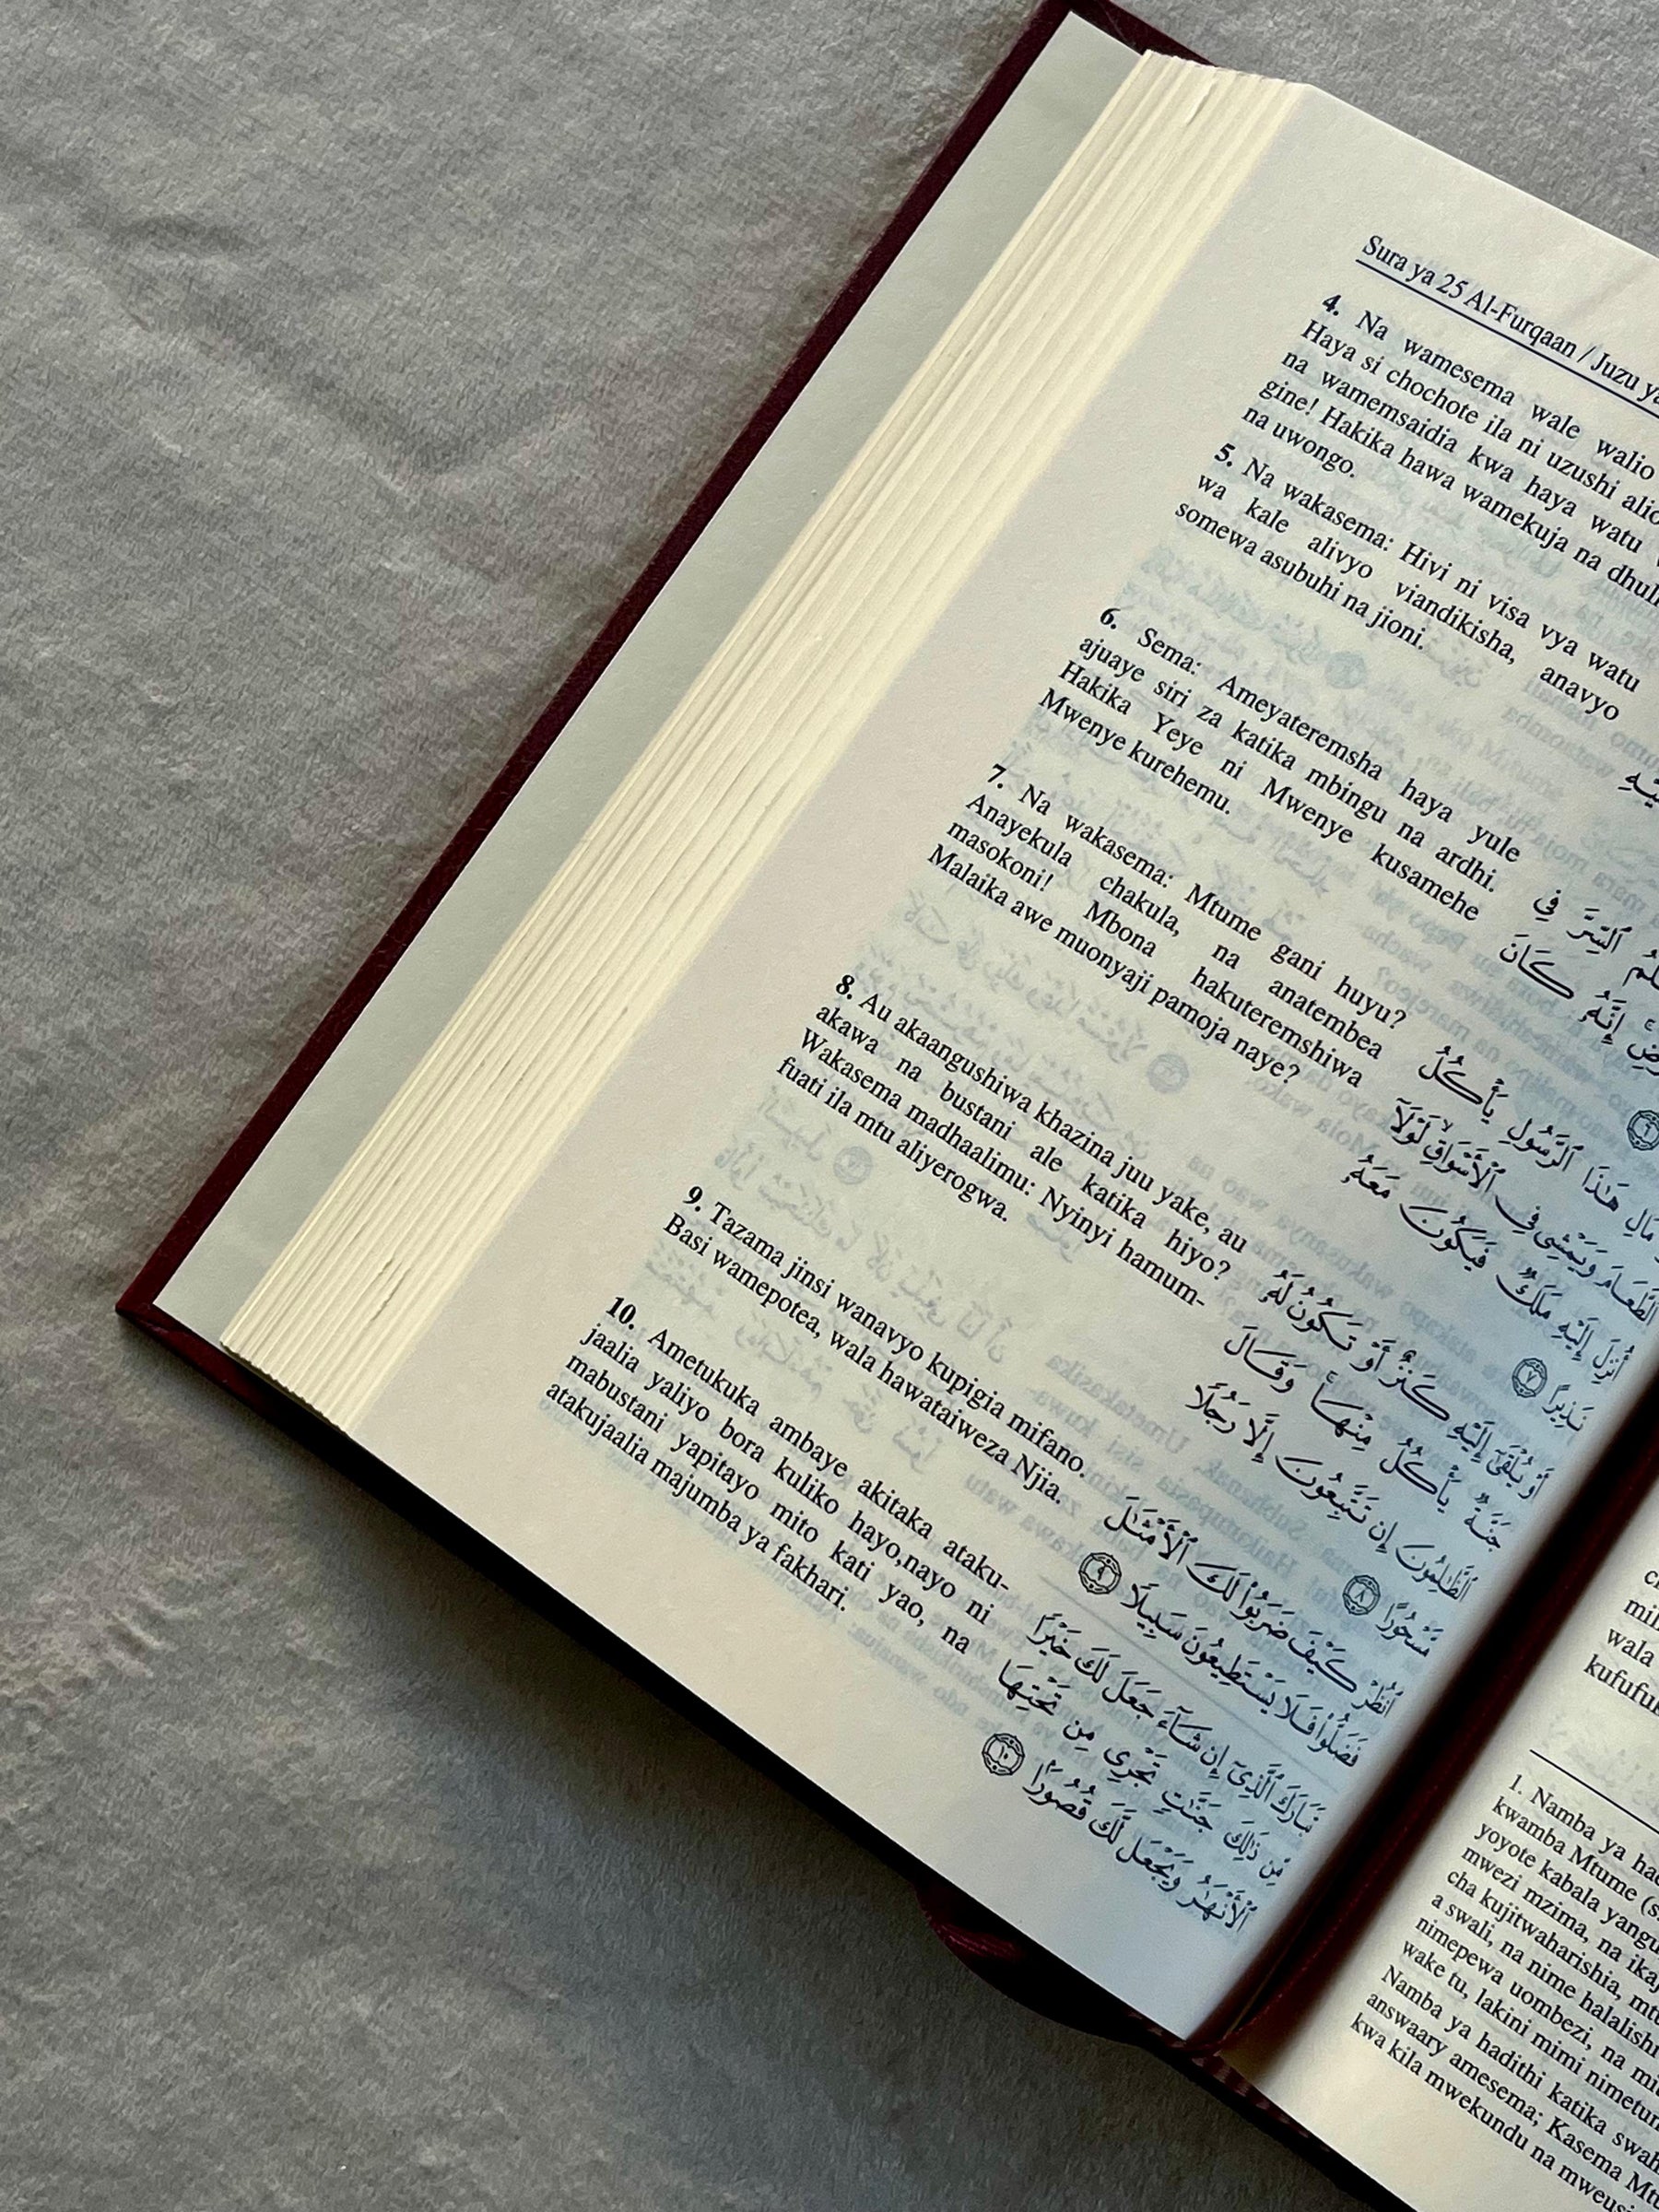 Sura ya 25 Al-Furqaan / Juzu ya
4. Na wamesema wale walio
Haya si chochote ila ni uzushi
na wamemsaidia kwa haya watu
gine! Hakika hawa wamekuja na
na uwongo.
5. Na wakasema: Hivi ni visa vya watu
wa kale alivyo viandikisha, anavyo
somewa asubuhi na jioni.
6. Sema: Ameyateremsha haya yule
ajuaye siri za katika mbingu na ardhi.
Hakika Yeye ni Mwenye kusamehe
Mwenye kurehemu.
7. Na wakasema: Mtume gani huyu?
Anayekula chakula, na anatembea
masokoni! Mbona hakuteremshiwa
Malaika awe muonyaji pamoja naye?
8. Au akaangushiwa khazina juu yake, au
akawa na bustani ale katika hiyo?
Wakasema madhaalimu: Nyinyi hamum-
fuati ila mtu aliyerogwa.
9. Tazama jinsi wanavyo kupigia mifano.
Basi wamepotea, wala hawataiweza Njia.
10. Ametukuka ambaye akitaka ataku-
jaalia yaliyo bora kuliko hayo,nayo ni
mabustani yapitayo mito kati yao, na
atakujaalia majumba ya fakhari.
ٱلسِّرَّ فِي
إِنَّهُۥ كَانَ
مَالِ هَٰذَا ٱلرَّسُولِ يَأْكُلُ
ٱلطَّعَامَ وَيَمْشِى فِى ٱلْأَسْوَاقِ ۙ لَوْلَآ
أُنزِلَ إِلَيْهِ مَلَكٌ فَيَكُونَ مَعَهُۥ
نَذِيرًا ٧
أَوْ يُلْقَىٰٓ إِلَيْهِ كَنزٌ أَوْ تَكُونُ لَهُۥ
جَنَّةٌ يَأْكُلُ مِنْهَا ۚ وَقَالَ
ٱلظَّٰلِمُونَ إِن تَتَّبِعُونَ إِلَّا رَجُلًا
مَّسْحُورًا ٨
ٱنظُرْ كَيْفَ ضَرَبُوا۟ لَكَ ٱلْأَمْثَٰلَ
فَضَلُّوا۟ فَلَا يَسْتَطِيعُونَ سَبِيلًا ٩
تَبَارَكَ ٱلَّذِىٓ إِن شَآءَ جَعَلَ لَكَ خَيْرًا
مِّن ذَٰلِكَ جَنَّٰتٍ تَجْرِى مِن تَحْتِهَا
ٱلْأَنْهَٰرُ وَيَجْعَل لَّكَ قُصُورًۢا ١٠
wala
1. Namba ya
kwamba Mtume
yoyote kabala yangu
mwezi mzima, na
cha kujitwaharishia,
a swali, na nime
nimepewa uombezi, na
wake tu, lakini mimi
Namba ya hadithi katika
answaary amesema; Kasema
kwa kila mwekundu na